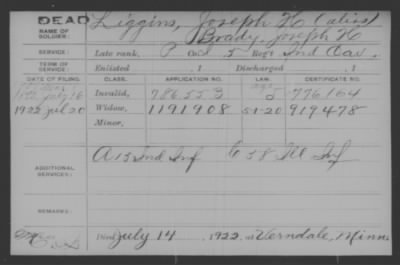 DEAD
NAME OF SOLDIER: Liggins, Joseph H (alias)
Brady, Joseph H
SERVICE: Late rank, P Co. 5 Reg't Ind Cav.
TERM OF SERVICE: Enlisted , 1 Discharged , 1
DATE OF FILING. CLASS. APPLICATION NO. LAW. CERTIFICATE NO.
July 16 Invalid, 786553 776164
1922 Jul 20 Widow, 1191908 5-1-20 919478
Minor,
ADDITIONAL SERVICES: A 13 Ind Inf 58 Ill Inf
REMARKS:
Died July 14 1922, at Verndale, Minn